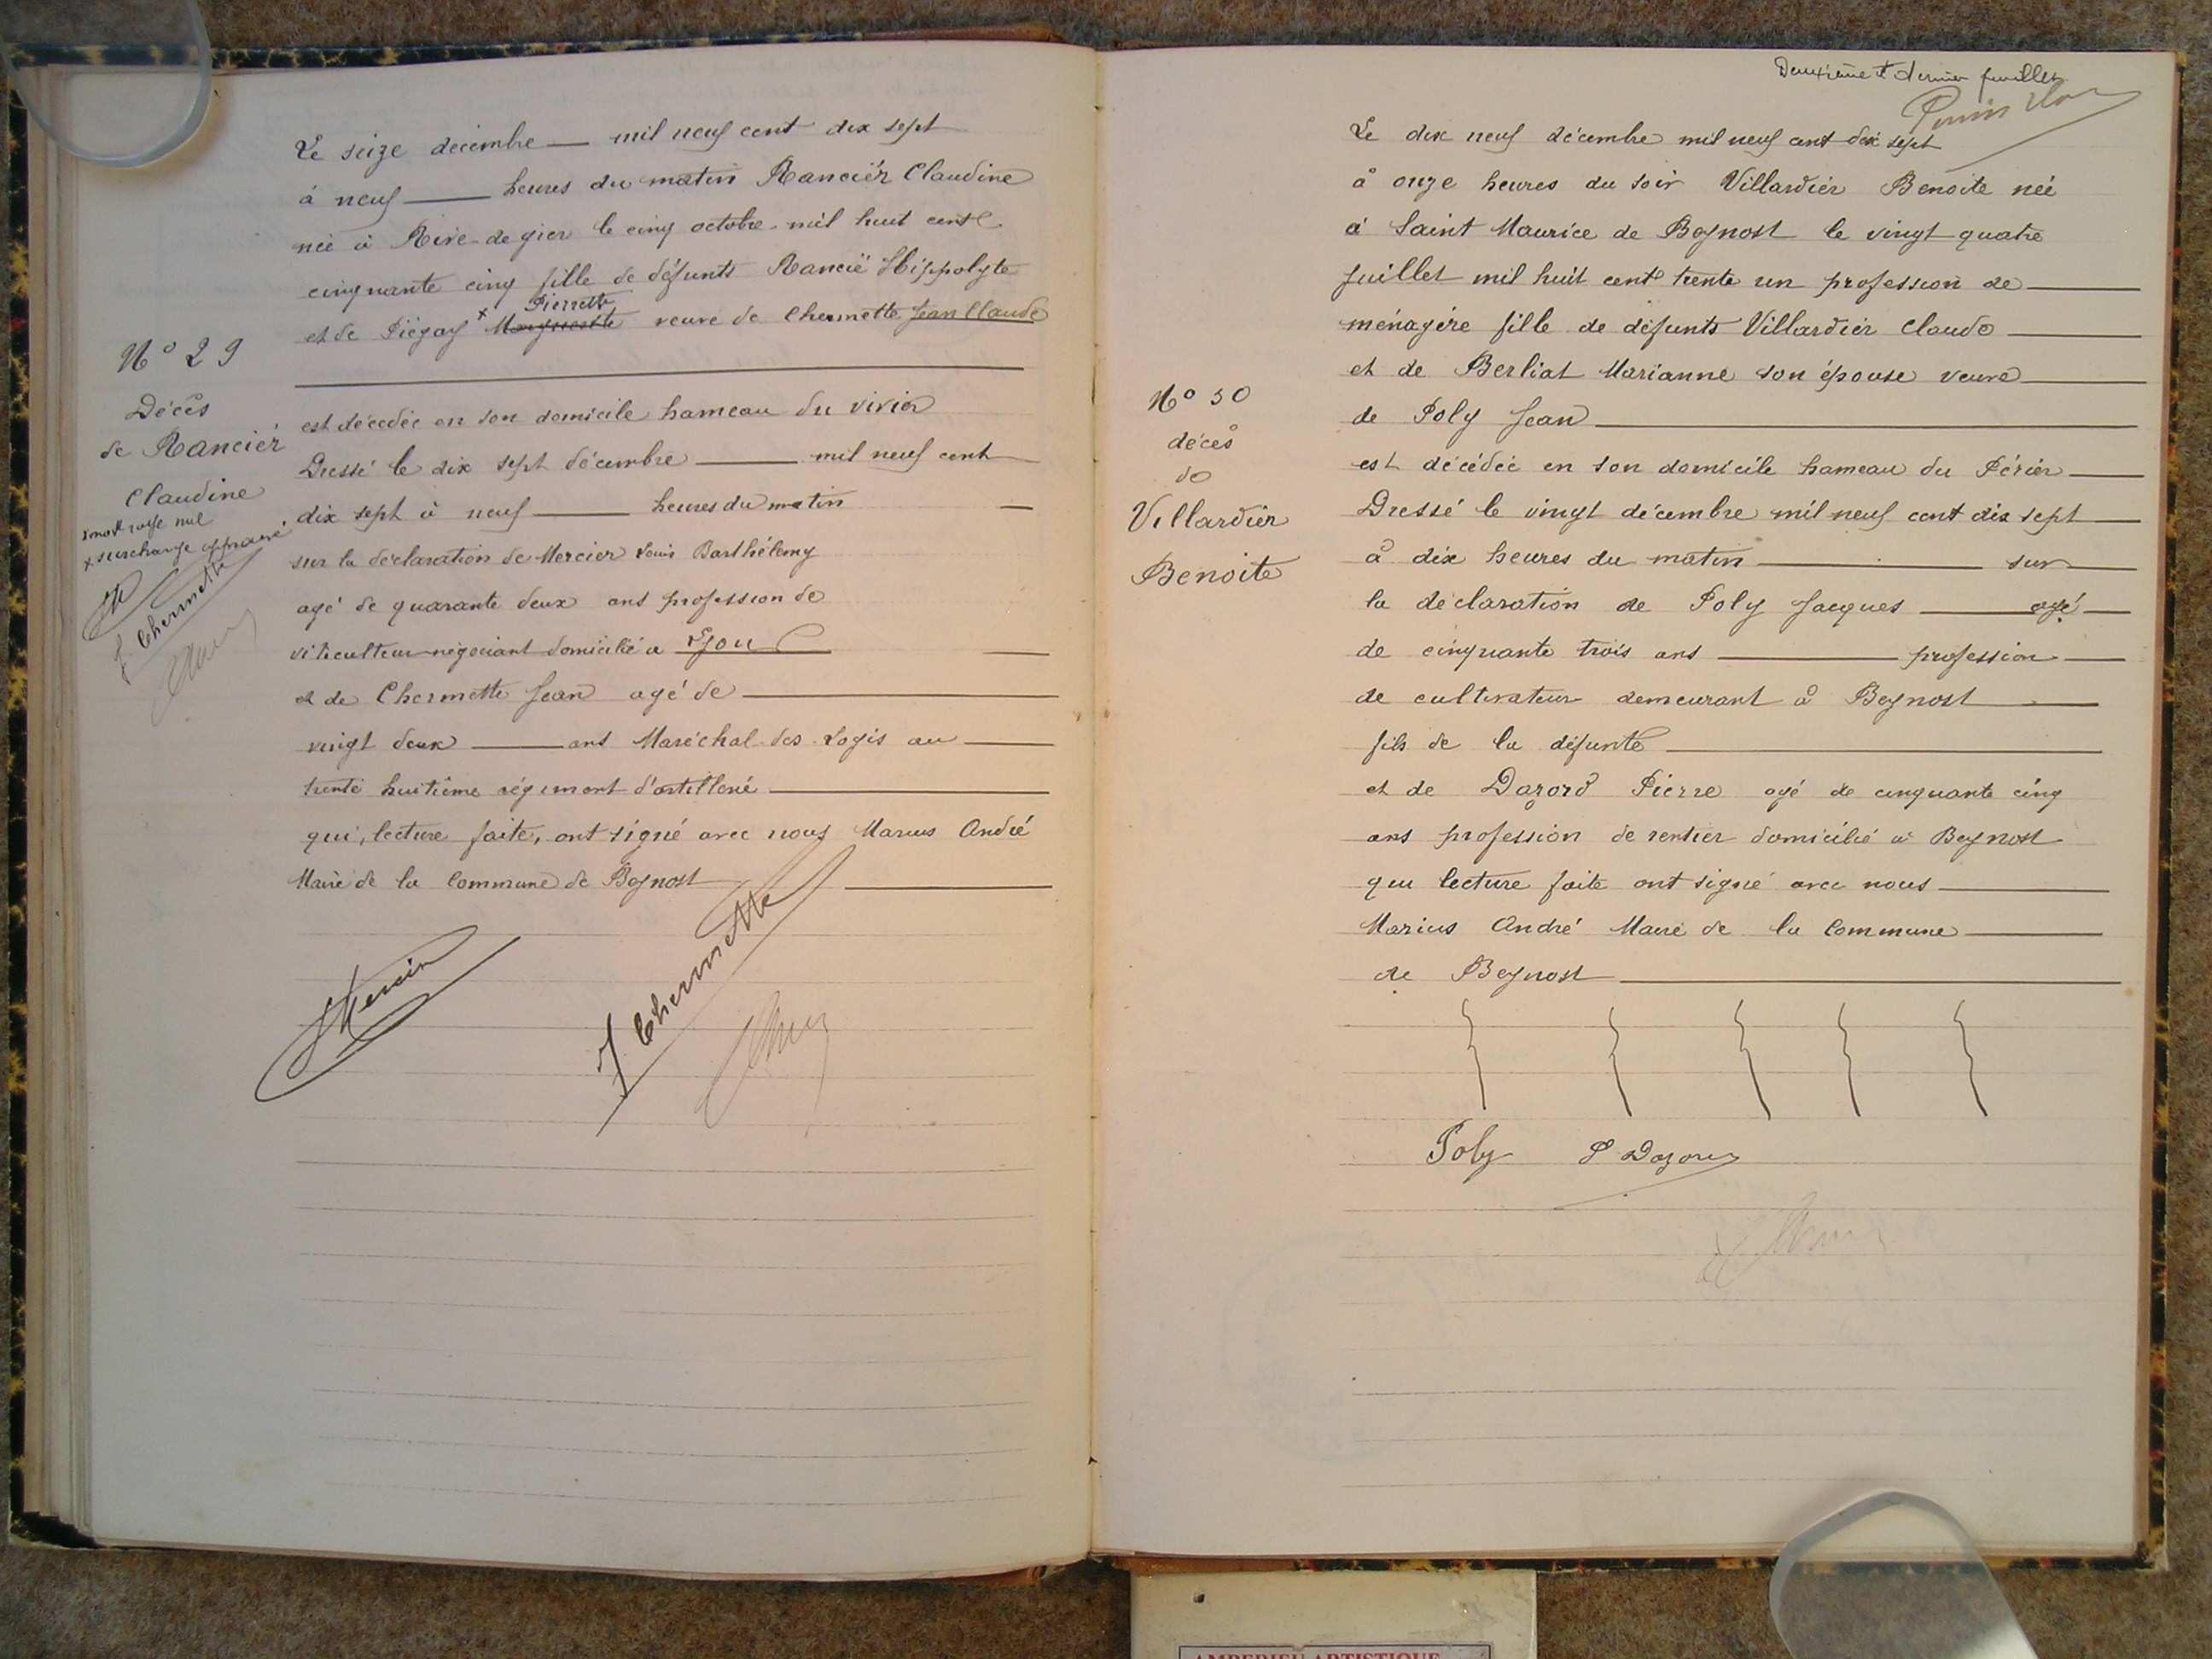 Le seize décembre — mil neuf cent dix sept
à neuf — heures du matin Rancier Claudine
née à Rive-de-gier le cinq octobre mil huit cent
cinquante cinq fille de défunts Rancié Hippolyte
Pierrette
et de Piégay x Marguerite veuve de Chermette Jean Claude
N° 29
Décès
de Rancier
Claudine
1 mot rayé nul
x surcharge approuvé
J. Chermette
est décédée en son domicile hameau du vivier
Dressé le dix sept décembre — mil neuf cent
dix sept à neuf — heures du matin —
sur la déclaration de Mercier Louis Barthélemy
agé de quarante deux ans profession de
viticulteur-négociant domicilié à Lyon
et de Chermette Jean agé de —
vingt deux — ans Maréchal-des-Logis au —
trente huitième régiment d'artillerie —
qui, lecture faite, ont signé avec nous Marius André
Maire de la Commune de Beynost —
Mercier
J. Chermette
Deuxième et dernier feuillet
Le dix neuf décembre mil neuf cent dix sept
à onze heures du soir Villardier Benoite née
à Saint Maurice de Beynost le vingt quatre
juillet mil huit cent trente un profession de —
ménagère fille de défunts Villardier Claude —
et de Berliat Marianne son épouse veuve —
de Poly Jean —
est décédée en son domicile hameau du Périer —
Dressé le vingt décembre mil neuf cent dix sept —
à dix heures du matin — sur —
la déclaration de Poly Jacques — agé —
de cinquante trois ans — profession —
de cultivateur demeurant à Beynost —
fils de la défunte —
et de Dazord Pierre agé de cinquante cinq
ans profession de rentier domicilié à Beynost
qui lecture faite ont signé avec nous —
Marius André Maire de la Commune —
de Beynost —
N° 30
décès
de
Villardier
Benoite
Poly P Dazord
AMBERIEU ARTISTIQUE